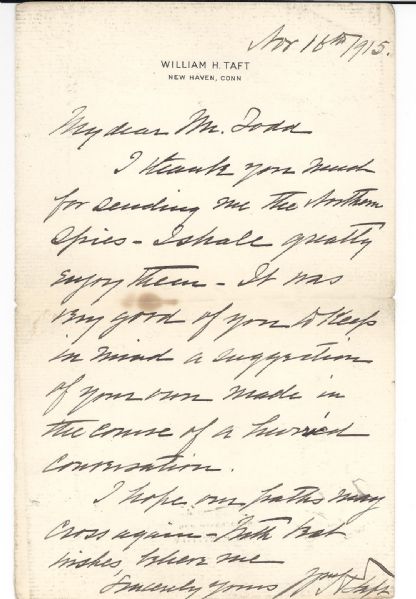 Nov 16th 1915.
WILLIAM H. TAFT
NEW HAVEN, CONN
My dear Mr. Todd
I thank you much
for sending me the Northern
Spies - I shall greatly
enjoy them - It was
very good of you to keep
in mind a suggestion
of your own made in
the course of a hurried
conversation.
I hope our paths may
cross again - With best
wishes, believe me
Sincerely yours
Wm H Taft